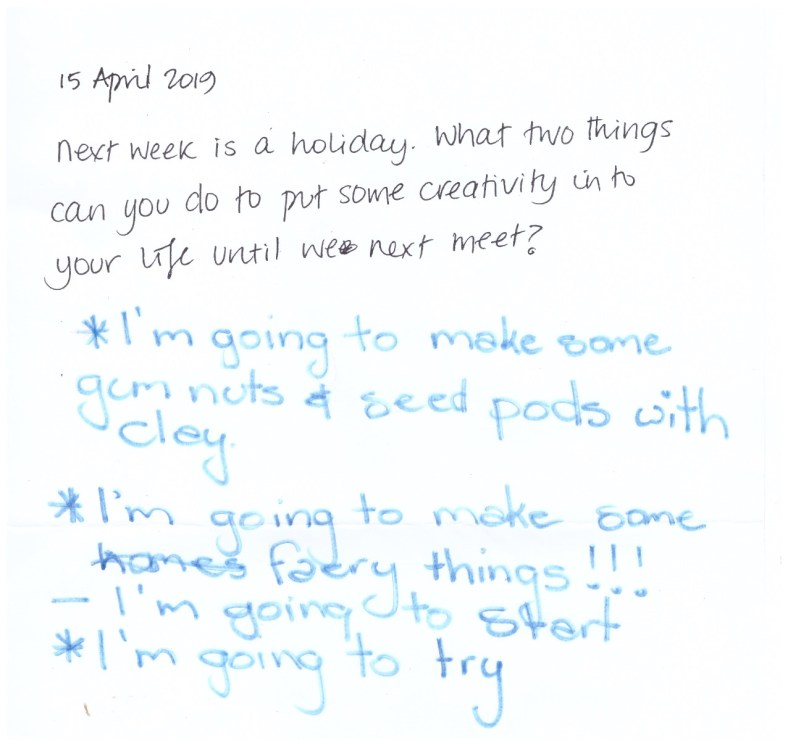 15 April 2019
next week is a holiday. What two things
can you do to put some creativity in to
your life until we next meet?
*I'm going to make some
gum nuts & seed pods with
clay.
*I'm going to make some
homes faery things!!!
— I'm going to start
*I'm going to try